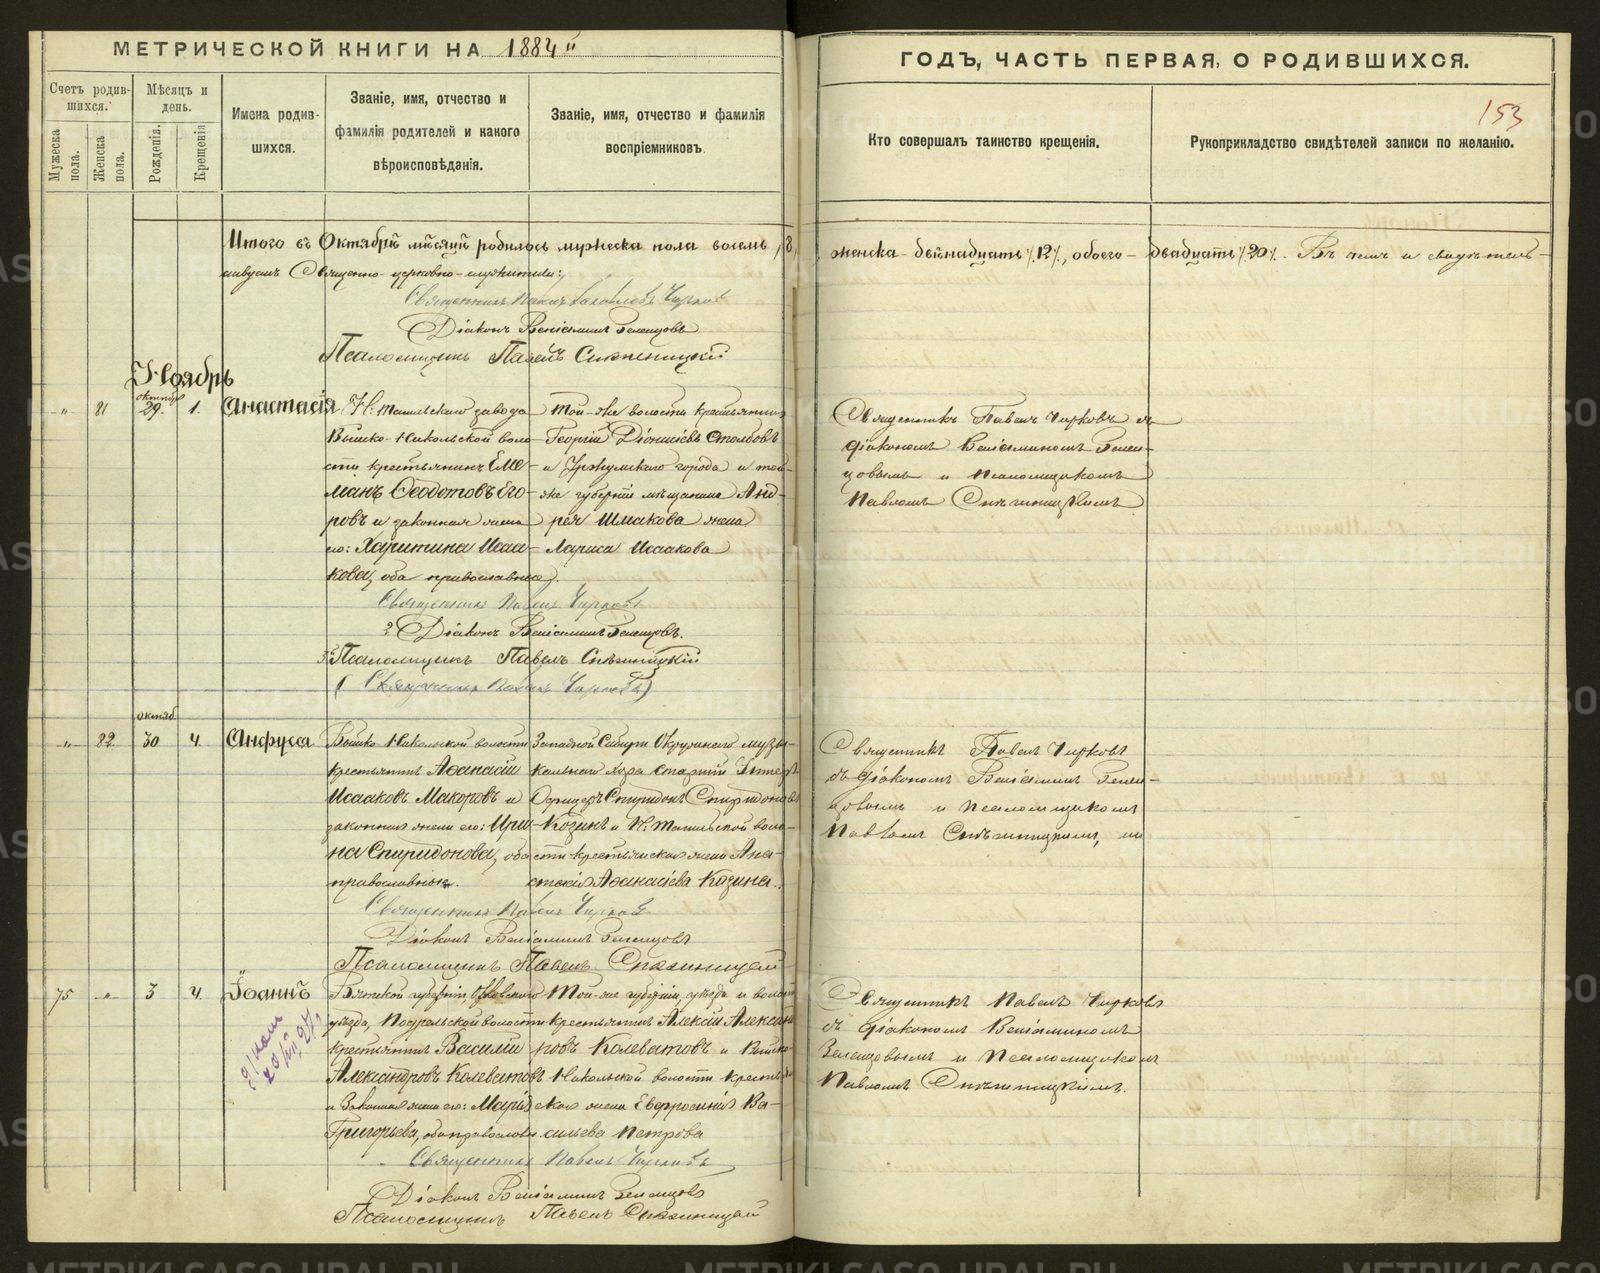 МЕТРИЧЕСКОЙ КНИГИ НА 1884й
ГОДЪ, ЧАСТЬ ПЕРВАЯ, О РОДИВШИХСЯ.
153
Счетъ родив-
шихся.
Мужеска пола.
Женска пола.
Мѣсяцъ и
день.
Рожденія.
Крещенія
Имена родив-
шихся.
Званіе, имя, отчество и
фамилія родителей и какого
вѣроисповѣданія.
Званіе, имя, отчество и фамилія
воспріемниковъ
Кто совершалъ таинство крещенія.
Рукоприкладство свидѣтелей записи по желанію.
Итого въ Октябрѣ мѣсяцѣ родилось мужеска пола восемь /8/
женска - двѣнадцать /12/, обоего - двадцать /20/. Въ чемъ и свидѣтель-
ствуемъ Священно-церковно-служители:
Священникъ Павелъ Чирковъ
Діаконъ Веніаминъ Зеленцовъ
Псаломщикъ Павелъ
Ноябрь
„ 81 октябр. 29. 1. Анастасія
Н: Тагильскаго завода
Выйско-Никольской воло-
сти крестьянинъ Еме-
ліанъ Ѳеодотовъ Его-
ровъ и законная жена
его: Харитина Исаа-
кова, оба православные.
Той-же волости крестьянинъ
Георгій Діонисіевъ Столбовъ
и Уржумскаго города и той-
же губерніи мѣщанина Анд-
рея Шмакова жена
Лариса Исаакова
Священникъ Павелъ Чирковъ съ
діакономъ Веніаминомъ Зелен-
цовымъ и псаломщикомъ
Павломъ
Священникъ Павелъ Чирковъ
2. Діаконъ Веніаминъ Зеленцовъ.
3. Псаломщикъ Павелъ
(1. Священникъ Павелъ Чирковъ)
„ 82 октяб. 30 4. Анфуса
Выйско-Никольской волости
крестьянинъ Аѳанасій
Исааковъ Макаровъ и
законная жена его: Ири-
на Спиридонова, оба
православные.
Западной Сибири Окружнаго музы-
кальнаго Хора старшій Унтеръ
Офицеръ Спиридонъ Спиридоновъ
Козинъ и Н: Тагильской воло-
сти крестьянская жена Ана-
стасія Аѳанасіева Козина.
Священникъ Павелъ Чирковъ
съ діакономъ Веніаминомъ Зелен-
цовымъ и псаломщикомъ
Павломъ
Священникъ Павелъ Чирковъ
Діаконъ Веніаминъ Зеленцовъ
Псаломщикъ Павелъ
75 „ 3 4. Іоаннъ
Вятской губерніи, Орловскаго
уѣзда, Подрельской волости
крестьянинъ Василій
Александровъ Колеватовъ
и Законная жена его: Марія
Григорьева, оба православн.
Той-же губерніи, уѣзда и волости
крестьянинъ Алексій Алексан
ровъ Колеватовъ и Выйско-
Никольской волости кресть
ская жена Евфросинія Ва-
сильева Петрова
Священникъ Павелъ Чирковъ
съ діакономъ Веніаминомъ
Зеленцовымъ и псаломщикомъ
Павломъ
Священникъ Павелъ Чирковъ
Діаконъ Веніаминъ Зеленцовъ
Псаломщикъ Павелъ